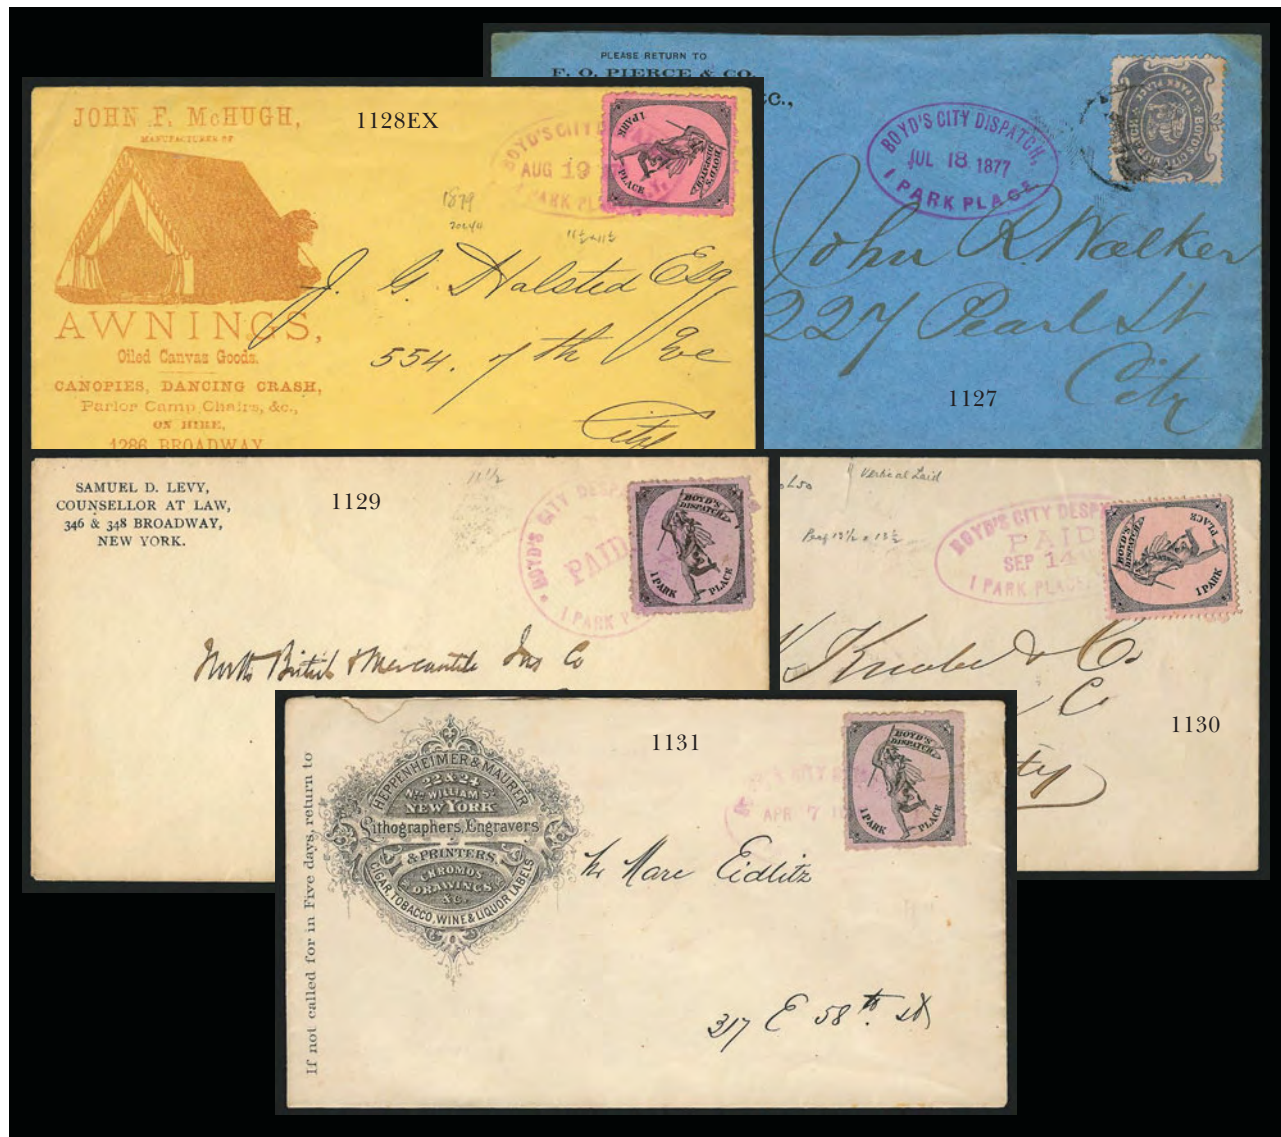 PLEASE RETURN TO
F. O. PIERCE & CO.
BOYD'S CITY DISPATCH,
JUL 18 1877
1 PARK PLACE
John R. Walker
227 Pearl St
City
1127
JOHN F. McHUGH,
MANUFACTURER OF
AWNINGS,
Oiled Canvas Goods.
CANOPIES, DANCING CRASH,
Parlor Camp Chairs, &c.,
ON HIRE,
1286 BROADWAY
1128EX
BOYD'S CITY
AUG 19
1 PARK PL
BOYD'S
DISPATCH
1 PARK PLACE
1879
J. G. Halsted Esq
554. 7th Ave
City
SAMUEL D. LEVY,
COUNSELLOR AT LAW,
346 & 348 BROADWAY,
NEW YORK.
1129
11 1/2
BOYD'S CITY DESP
PAID
1 PARK P
BOYD'S
DISPATCH
1 PARK PLACE
North British & Mercantile Ins Co
Vertical Laid
Perf 13 1/2 x 13 1/2
BOYD'S CITY DESP
PAID
SEP 14
1 PARK PLAC
BOYD'S
DISPATCH
1 PARK PLACE
Knabe & Co
1130
If not called for in Five days, return to
HEPPENHEIMER & MAURER
22 & 24
No. WILLIAM St.
NEW YORK
Lithographers, Engravers
& PRINTERS
CHROMOS
DRAWINGS
&C.
CIGAR, TOBACCO, WINE & LIQUOR LABELS
1131
CITY
APR 7
BOYD'S
DISPATCH
1 PARK PLACE
Marc Eidlitz
317 E 58th St